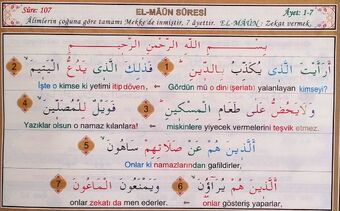 Sûre: 107 EL-MÂÛN SÛRESİ Âyet: 1-7
Âlimlerin çoğuna göre tamamı Mekke'de inmiştir, 7 âyettir. EL-MÂÛN: Zekat vermek.
بِسْمِ اللهِ الرَّحْمٰنِ الرَّحِيمِ
اَرَاَيْتَ الَّذى يُكَذِّبُ بِالدِّينِ 1 فَذٰلِكَ الَّذى يَدُعُّ الْيَتِيمَ 2
Gördün mü o dini (şeriatı) yalanlayan kimseyi? İşte o kimse ki yetimi itip döven,
وَلَا يَحُضُّ عَلٰى طَعَامِ الْمِسْكِينِ 3 فَوَيْلٌ لِلْمُصَلِّينَ 4
miskinlere yiyecek vermelerini teşvik etmez. Yazıklar olsun o namaz kılanlara!
اَلَّذِينَ هُمْ عَنْ صَلَاتِهِمْ سَاهُونَ 5
Onlar ki namazlarından gafildirler,
اَلَّذِينَ هُمْ يُرَآؤُنَ 6 وَيَمْنَعُونَ الْمَاعُونَ 7
onlar gösteriş yaparlar, onlar zekatı da men ederler.